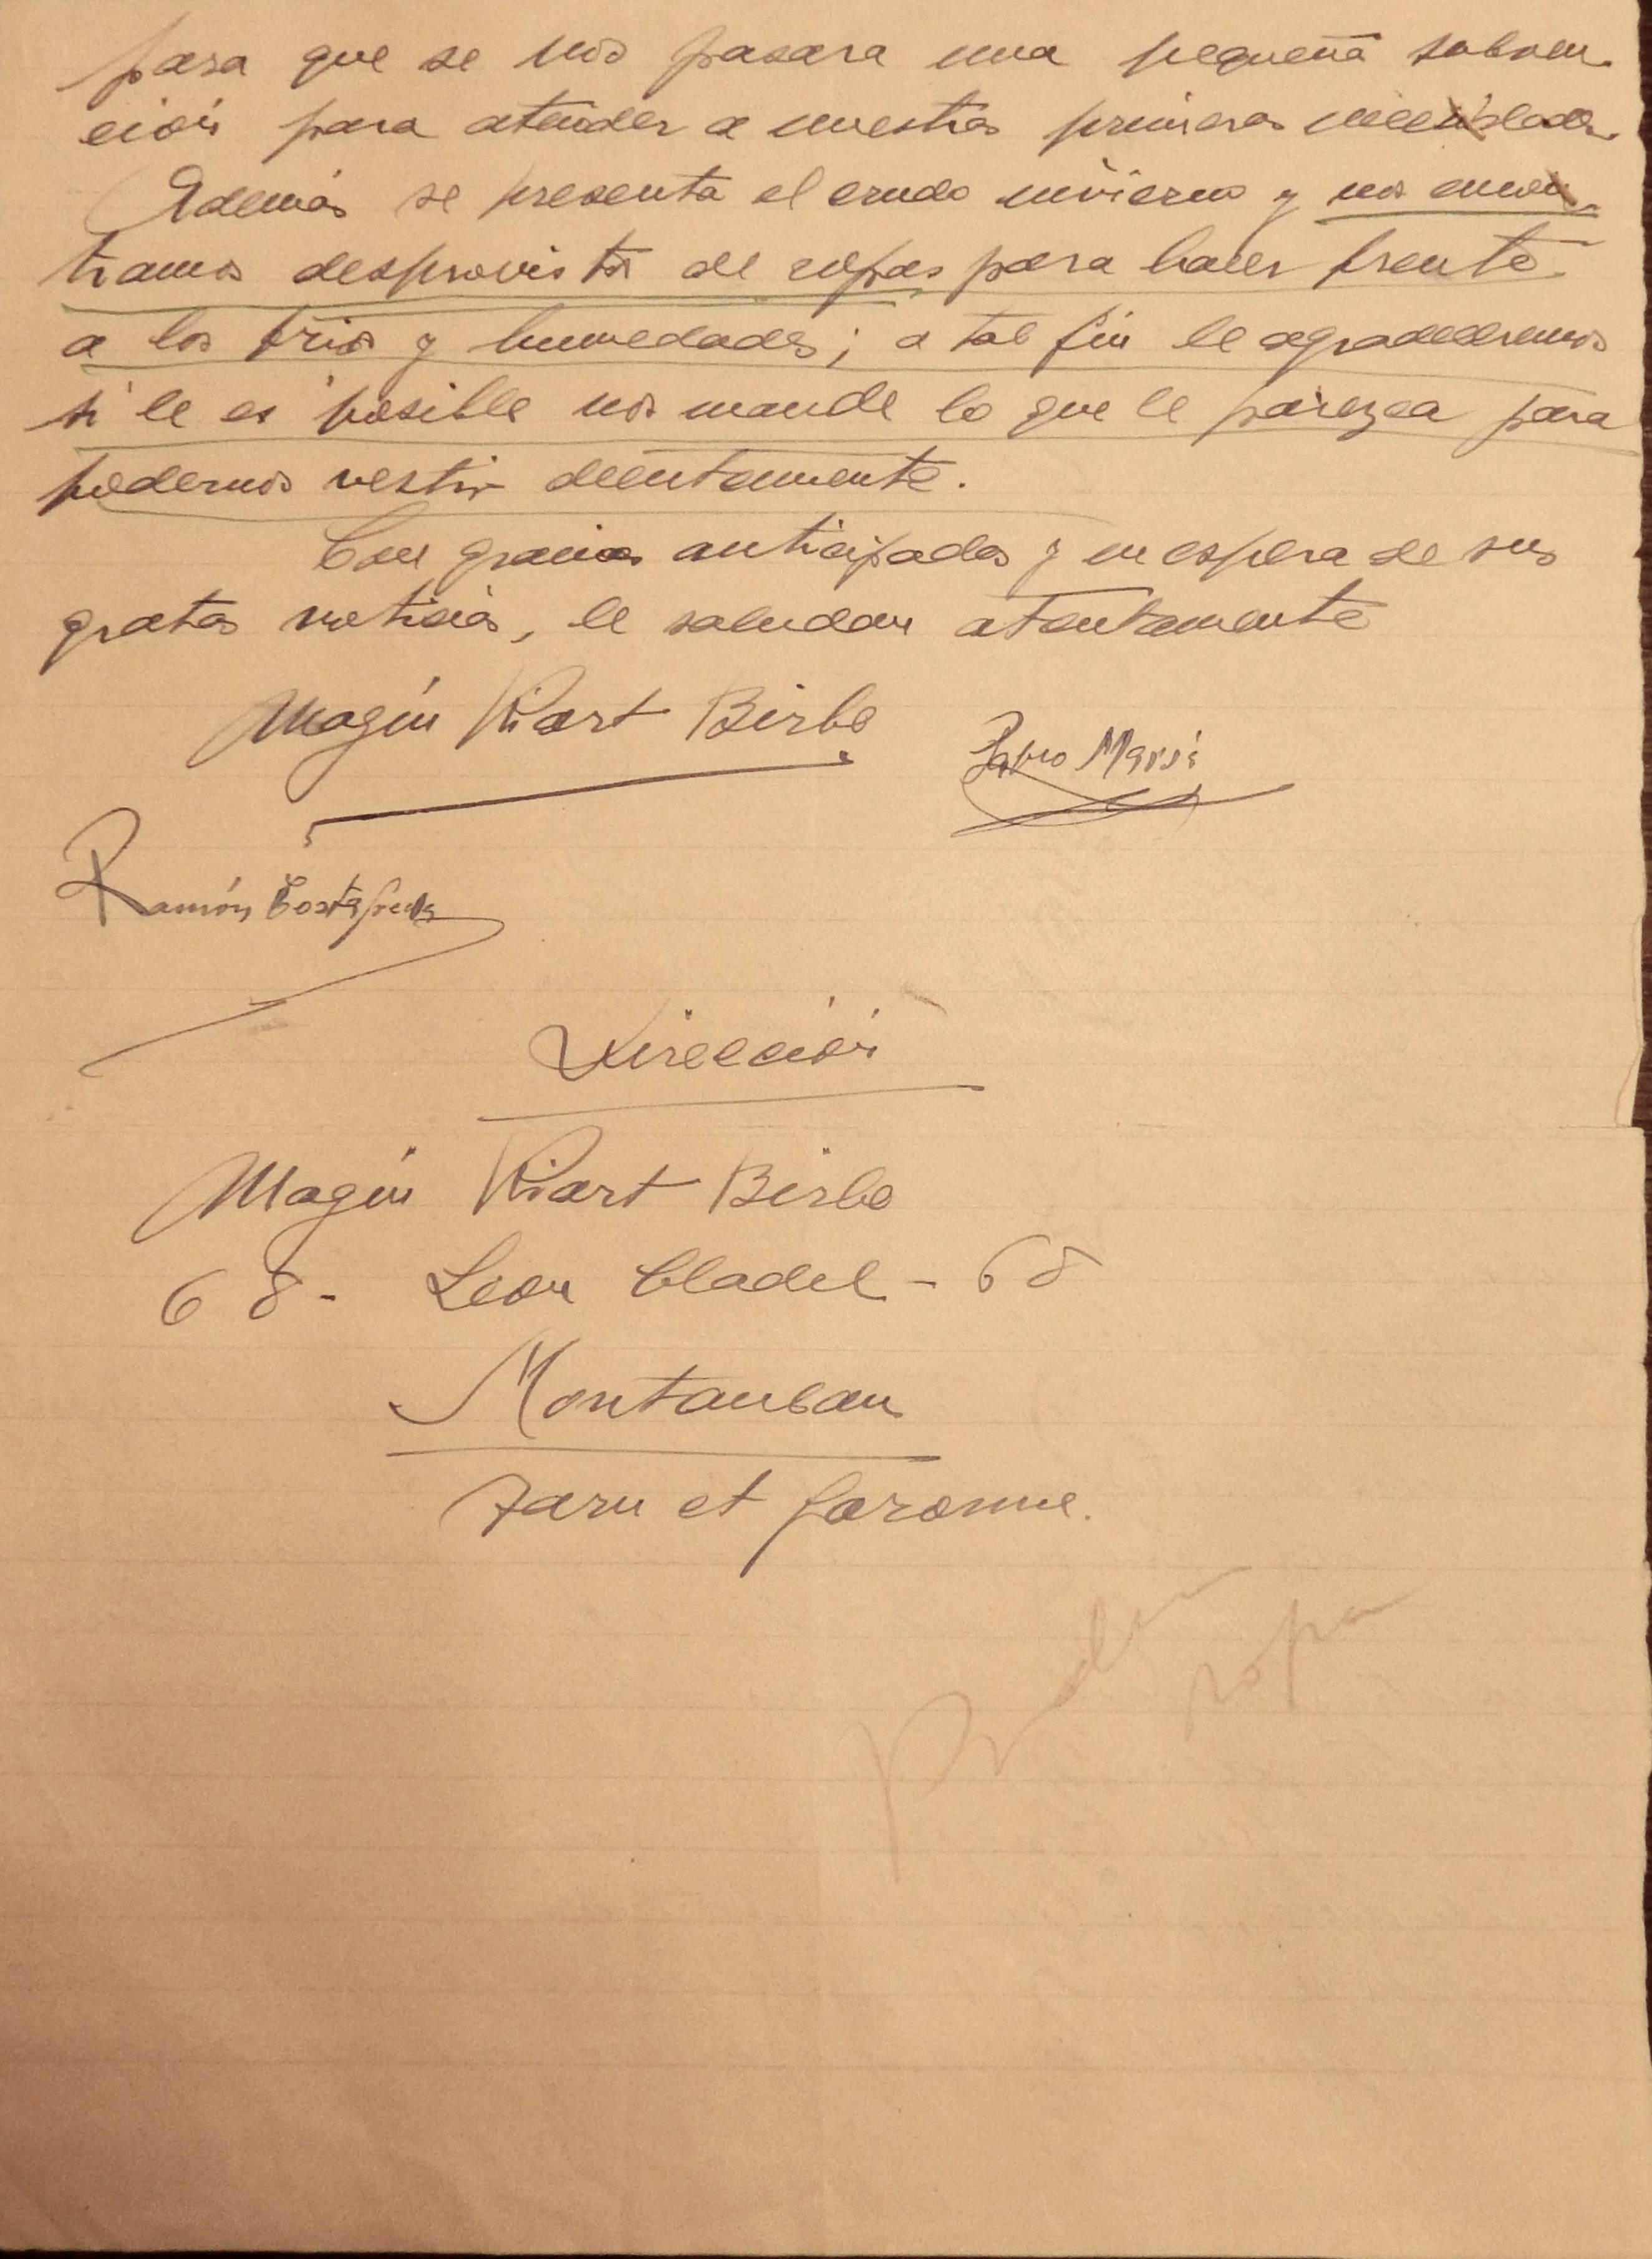 para que se nos pasara una pequeña subven-
ción para atender a nuestras primeras necesidades.
Además se presenta el crudo invierno y nos encon-
tramos desprovistos de ropas para hacer frente
a los frios y humedades; a tal fin le agradeceremos
si le es posible nos mande lo que le parezca para
podernos vestir decentamente.
Con gracias anticipadas y en espera de sus
gratas noticias, le saludan atentamente
Magín Riart Birbe
Pablo Marsá
Ramón Costafreda
Dirección
Magín Riart Birbe
68 - Leon Cladel - 68
Montauban
Tarn et Garonne.
Piden
ropa